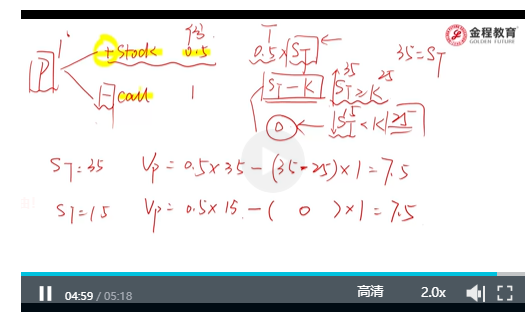 金程教育
GOLDEN FUTURE
P
+ Stock 0.5
0.5 × S_T
35 = S_T
- call 1
S_T - K
S_T ≥ K
35
25
0
S_T < K
15
25
S_T = 35 Vp = 0.5 × 35 - (35 - 25) × 1 = 7.5
S_T = 15 Vp = 0.5 × 15 - ( 0 ) × 1 = 7.5
04:59 / 05:18
高清
2.0x